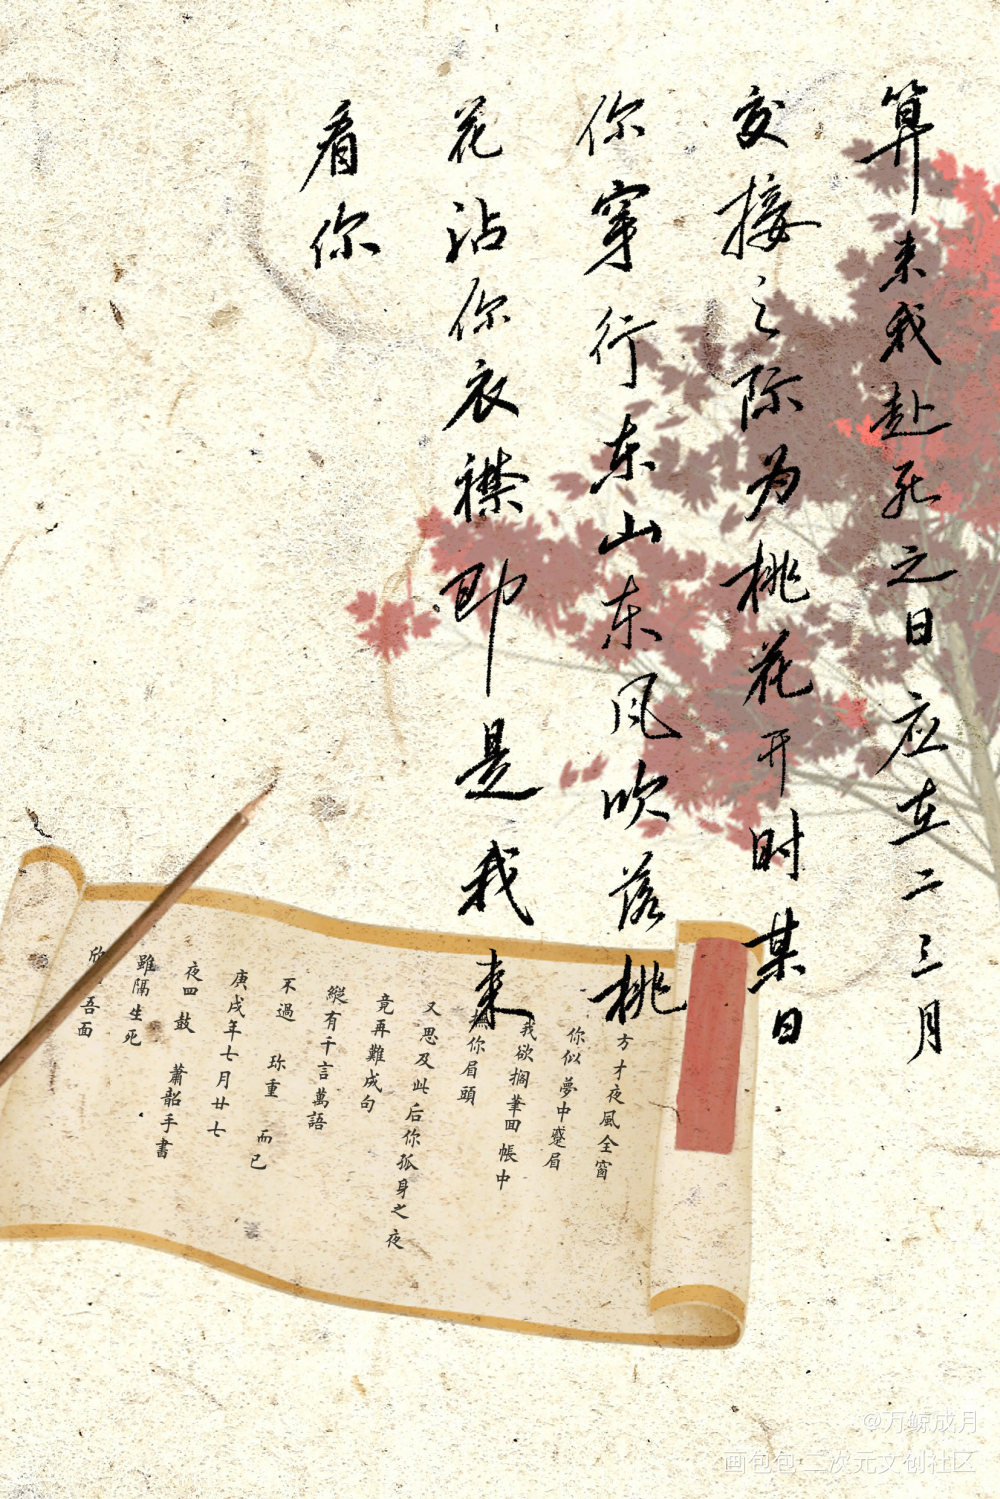 算来我赴死之日应在二三月
交接之际为桃花开时某日
你穿行东山东风吹落桃
花沾你衣襟即是我来
看你
方才夜風全窗
你似夢中蹙眉
我欲擱筆回帳中
撫你眉頭
又思及此后你孤身之夜
竟再難成句
縱有千言萬語
不過 珎重 而已
庚戌年七月廿七
夜四鼓 蕭韶手書
雖隔生死
欣 吾面
@万鲸成月
画包包-二次元文创社区